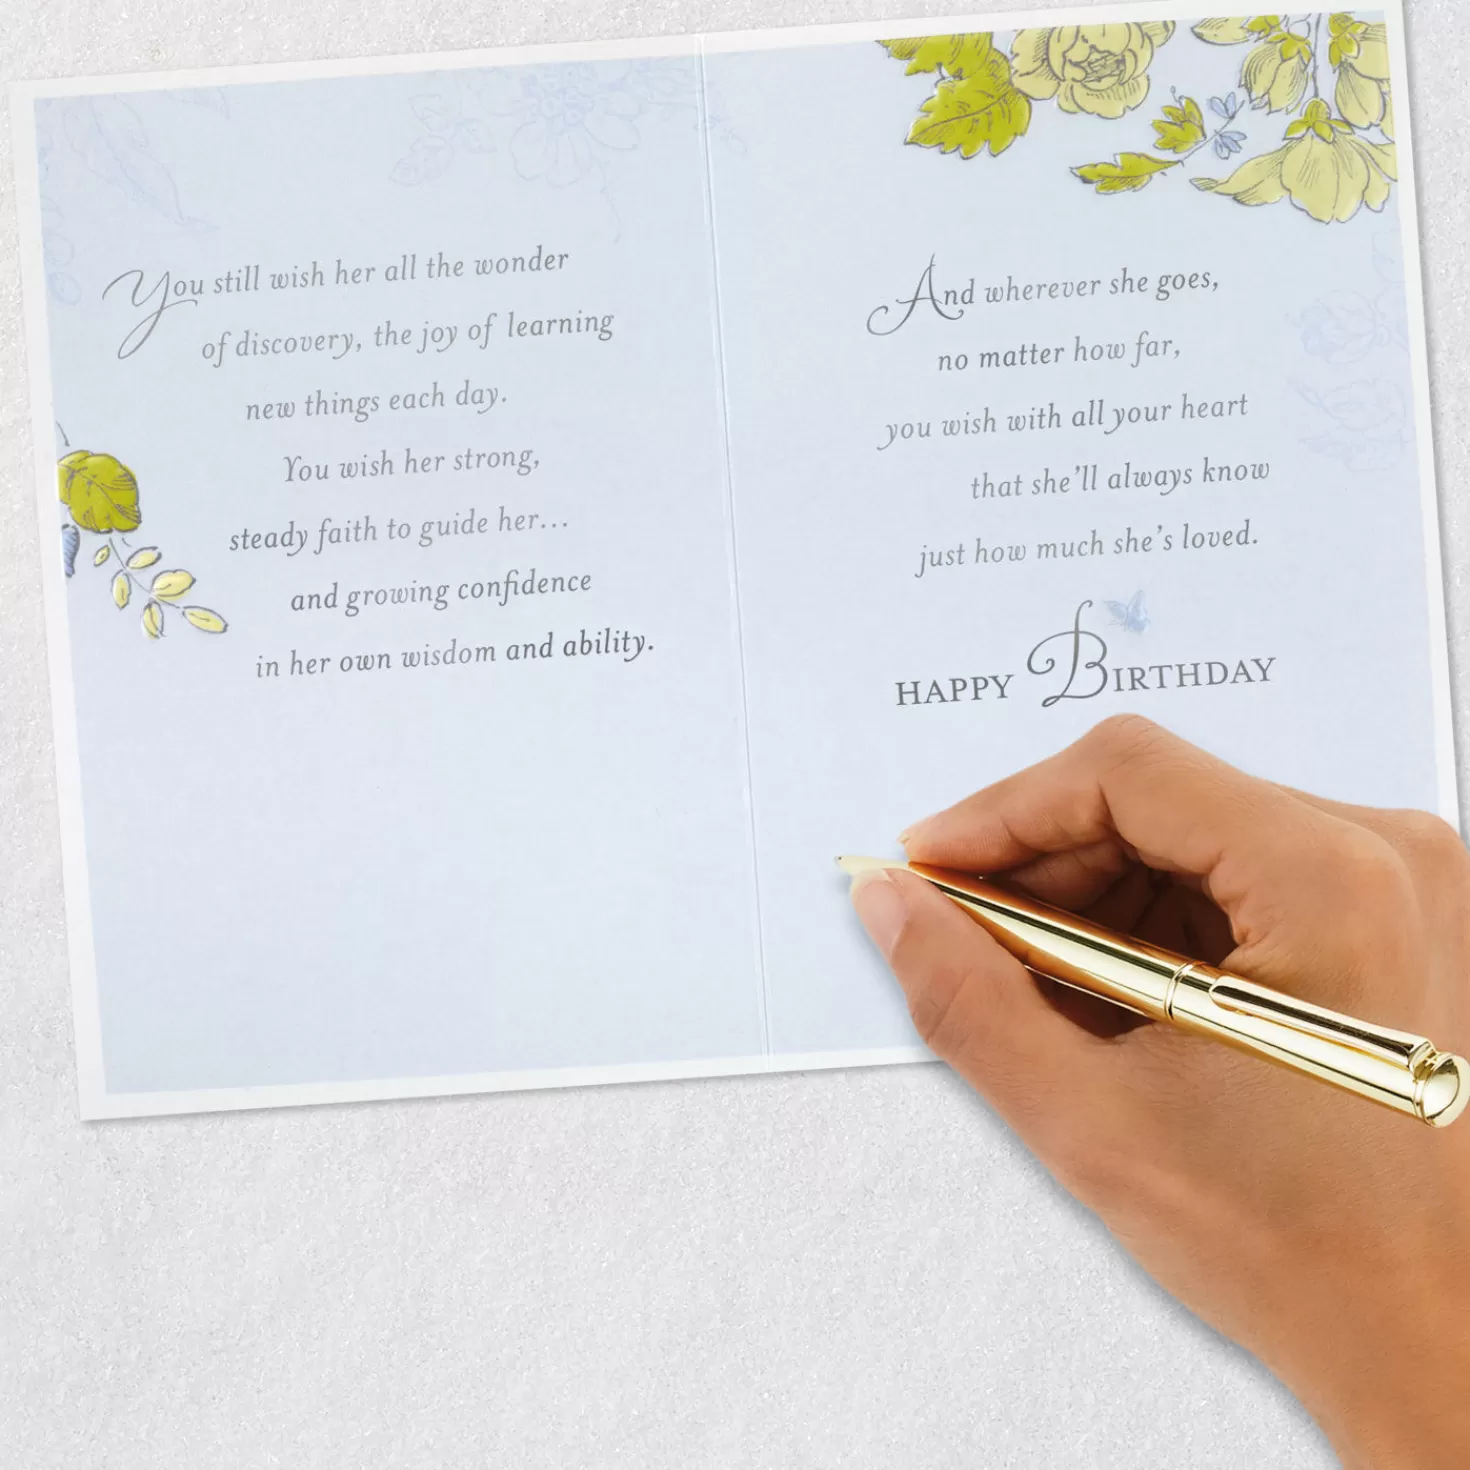 You still wish her all the wonder
of discovery, the joy of learning
new things each day.
You wish her strong,
steady faith to guide her...
and growing confidence
in her own wisdom and ability.
And wherever she goes,
no matter how far,
you wish with all your heart
that she'll always know
just how much she's loved.
HAPPY BIRTHDAY